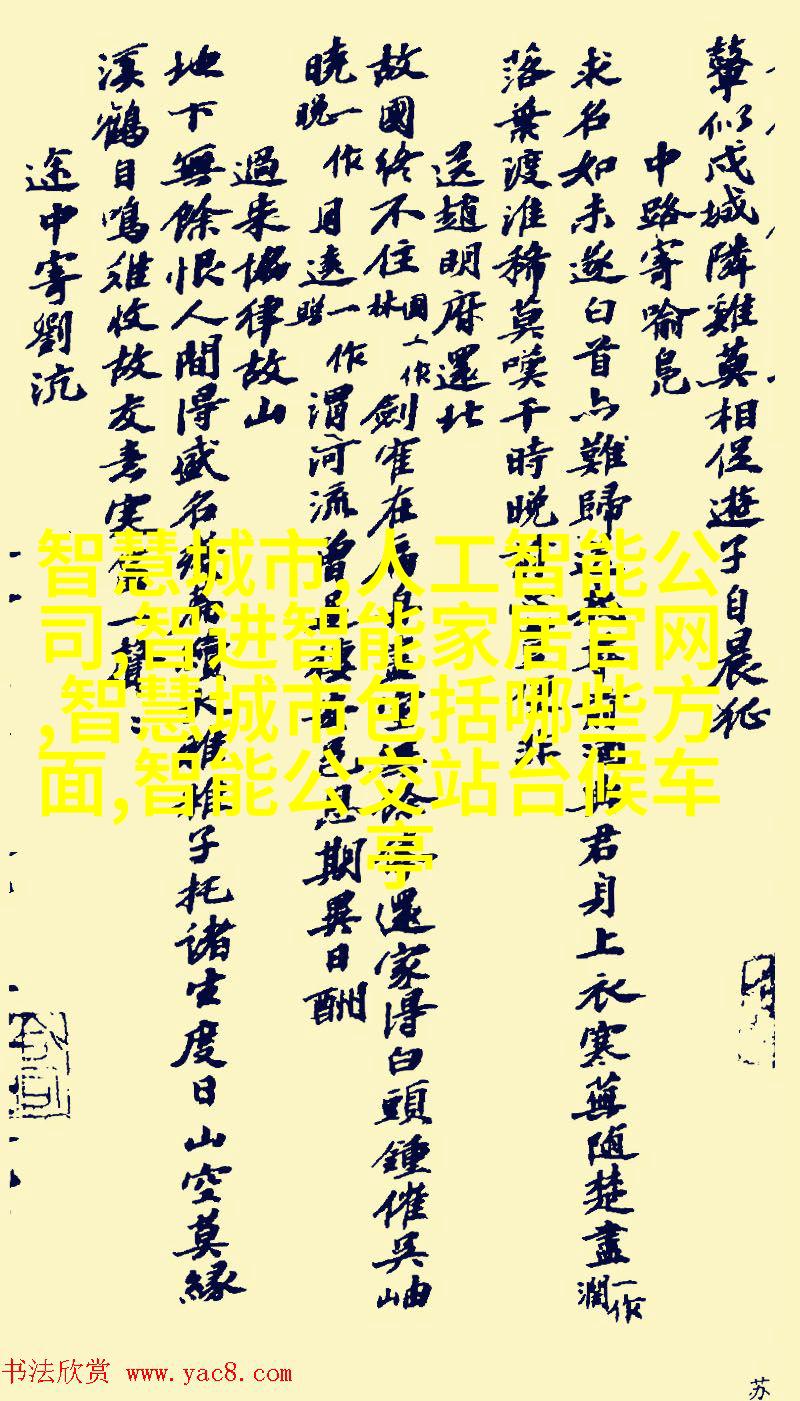 似戍城隣雞莫相促遊子自晨征
中路寄喻鳧
求名如未遂白首亦難歸送酒典君身上衣寒蕪隨楚盡一作澗
落葉渡淮稀莫嘆干時晚前心豈
送趙明府還北
故國終不住園一作林劍在還家得白頭鐘催吳岫
曉一作晚月遠一作照渭河流曾是棲安邑恩期異日酬
過朱協律故山
地下無餘恨人間得盛名殘春續大雅稚子托諸生度日山空莫緣
溪鶴自鳴難收故友意寒笛一聲
途中寄劉沆
智慧城市,人工智能公
司,智进智能家居官网
,智慧城市包括哪些方
面,智能公交站台候车
亭
书法欣赏 www.yac8.com
苏